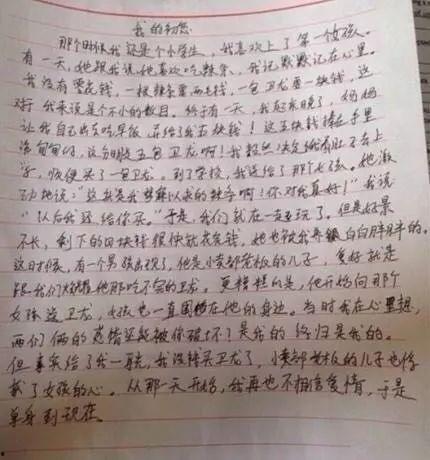 我的初恋
那个时候我还是个小学生，我喜欢上了第一个女孩。
有一天，她跟我说她喜欢吃辣条，我记默默记在心里。
我没有零花钱，一根辣条两毛钱，一包卫龙要一块钱，这
对我来说是个不小的数目。终于有一天，我起床晚了，妈妈
让我自己出去吃早饭，并给了我五块钱！这五块钱揣在手里
沉甸甸的，这分明是五包卫龙啊！我毅然决定饿着肚子去上
学，顺便买了一包卫龙。到了学校，我送给了那个女孩。她激
动地说："这就是我梦寐以求的辣条啊！你对我真好！"我说
"以后我还给你买。"于是，我们就在一起玩了。但是好景
不长，剩下的四块钱很快就花完，她也被我养得白白胖胖的。
这时候，有一个男孩出现了，他是小卖部老板的儿子，爱好就是
跟我们炫耀他那吃不完的卫龙。更糟糕的是，他开始向那个
女孩送卫龙，女孩也一直围绕在他的身边。当时我在心里想，
我们俩的感情岂能被你破坏？是我的终归是我的。
但事实给了我一耳光，我没钱买卫龙了，小卖部老板的儿子也俘
获了女孩的心。从那一天开始，我再也不相信爱情，于是
单身到现在。